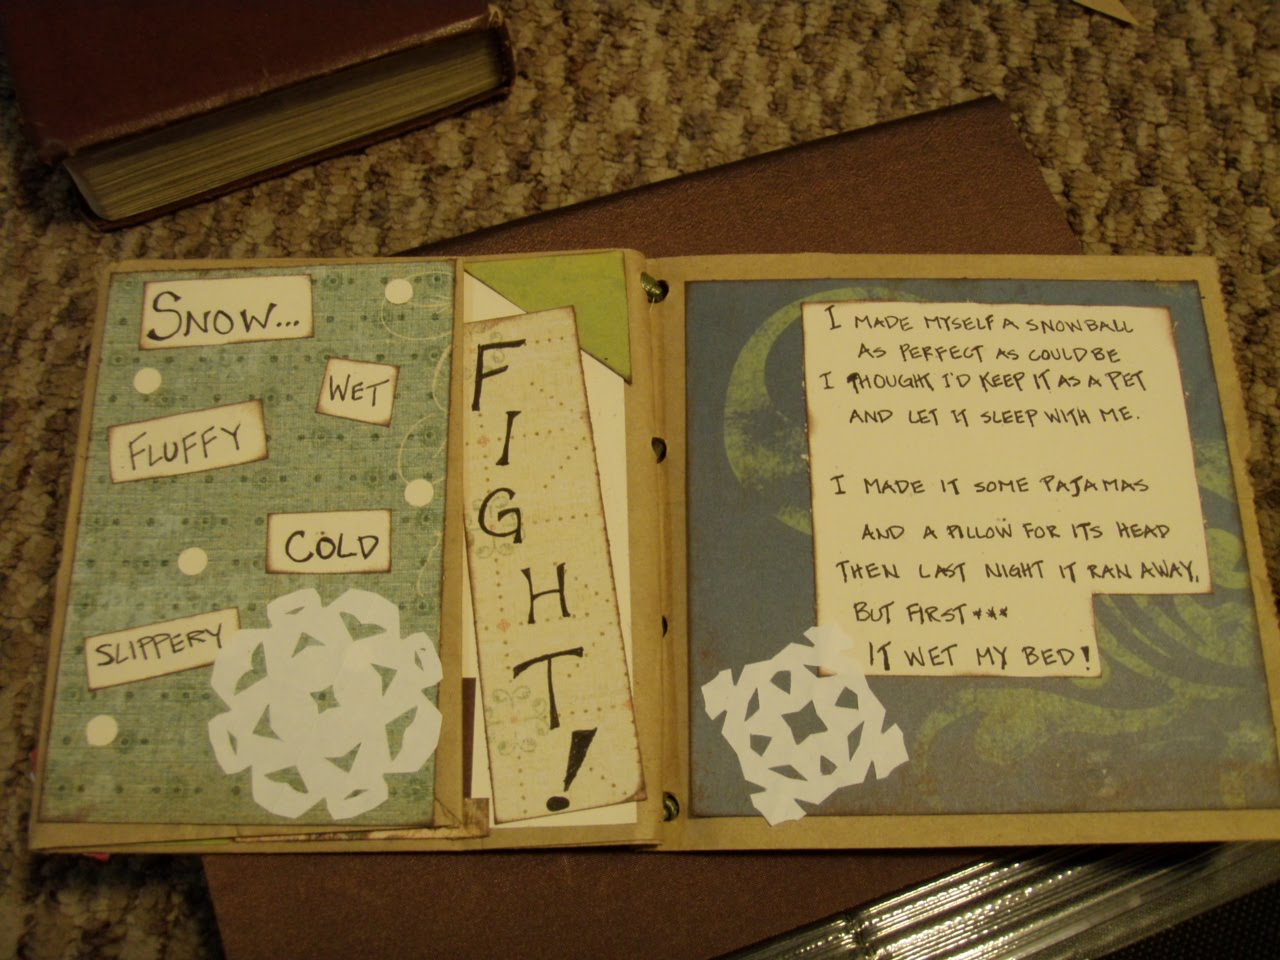 SNOW...
WET
FLUFFY
COLD
SLIPPERY
FIGHT!
I MADE MYSELF A SNOWBALL
AS PERFECT AS COULD BE
I THOUGHT I'D KEEP IT AS A PET
AND LET IT SLEEP WITH ME.
I MADE IT SOME PAJAMAS
AND A PILLOW FOR ITS HEAD
THEN LAST NIGHT IT RAN AWAY,
BUT FIRST***
IT WET MY BED!